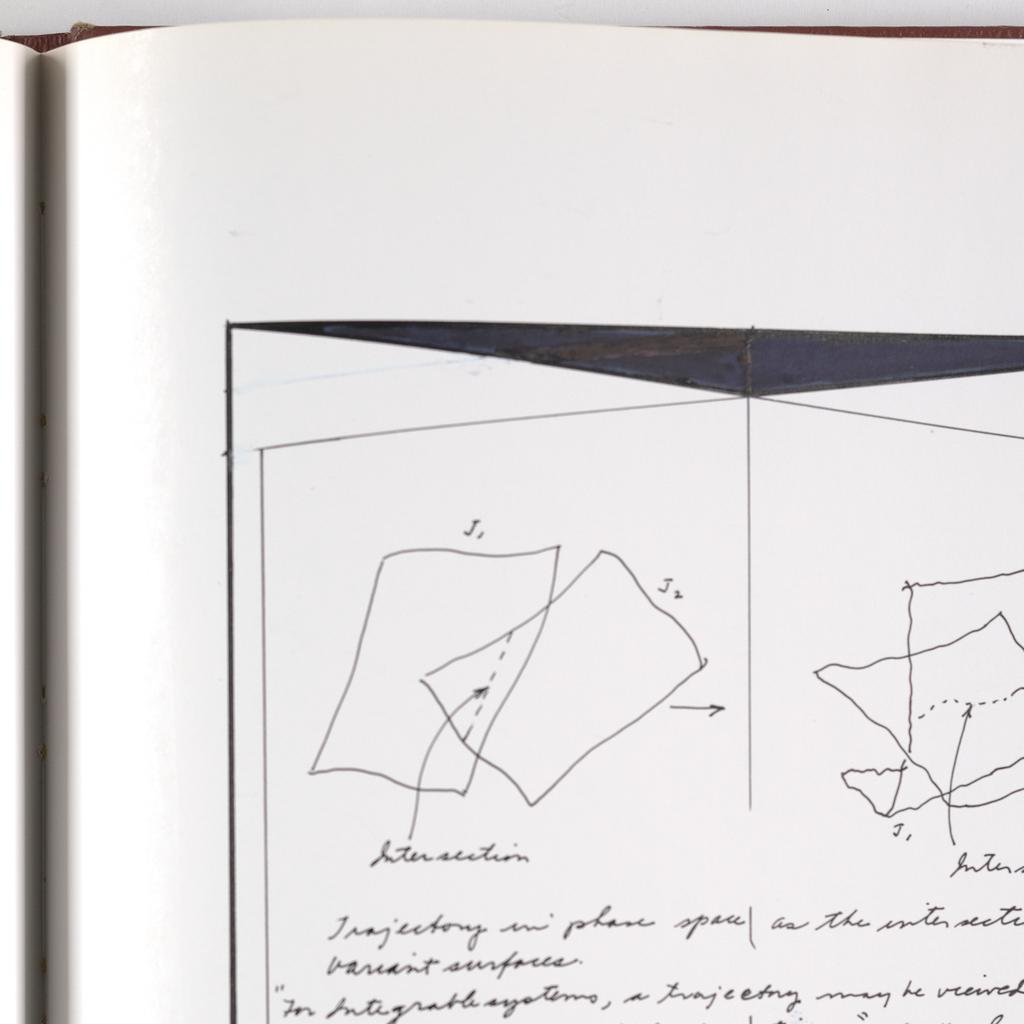 J₁
J₂
J₁
Intersection
Inters
Trajectory in phase space as the intersecti
variant surfaces.
"For Integrable systems, a trajectory may be viewed